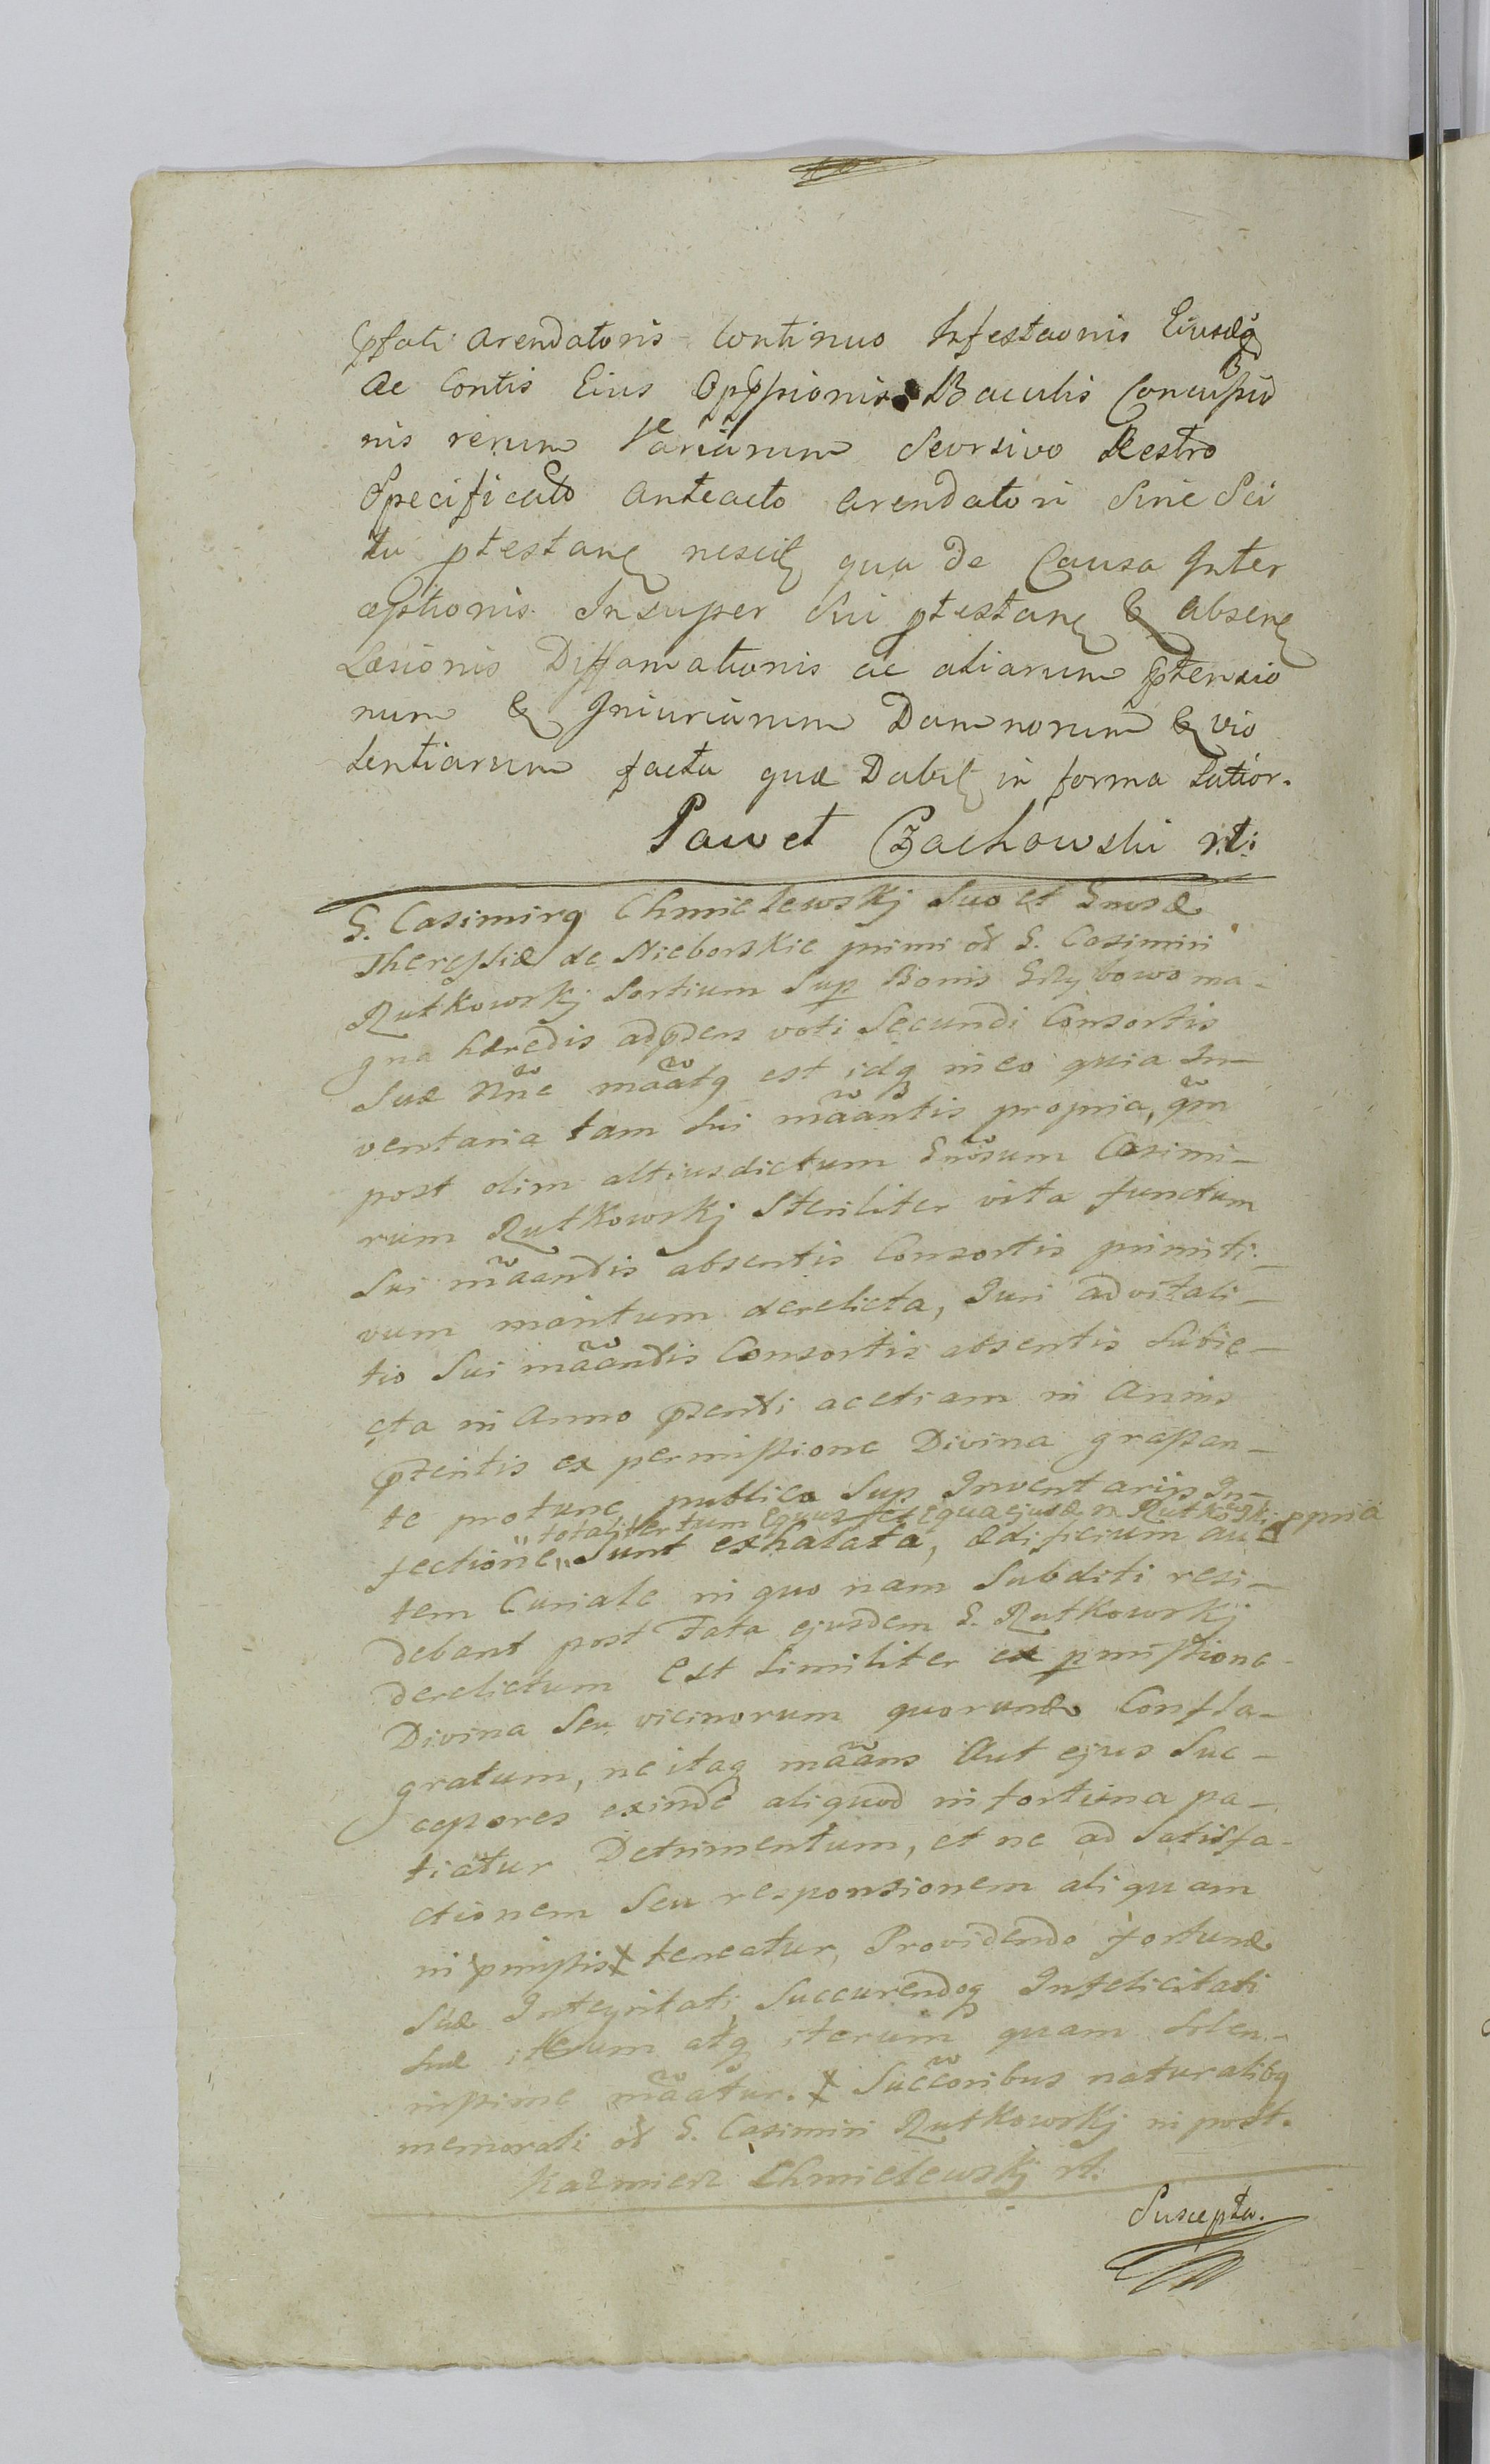 pfati arendatoris continuo Infestaonis Eiusdq
ac Contis Eius Opppionis Baculis Concupio
nis rerum Variarum Seorsivo Restro
Specificato anteacto arendatori Sine Sci
tu ptestans nescit qua de Causa Inter
ceptionis Insuper Sui ptestans & absens
Læsionis Diffamationis ac aliarum ptensio
num & Iniuriarum Damnorum & vio
lentiarum facta quæ Dabit in forma latior.
Paweł Czachowski rt:
G. Casimirq Chmielewskj Suo et Gnosæ
Theressiæ de Nieborskie primi ol G. Casimiri
Rutkowskj Sortium Sup Bonis Grzybowo ma-
gna hæredis adpdens voti Secundi Consortis
Suæ Nne maatq est idq in eo quia In-
ventaria tam Sui maantis propria, qm
post olim altiusdictum Gnosum Casimi-
rum Rutkowskj Steriliter vita functum
Sui maandis absentis Consortis primiti-
vum maritum derelicta, Juri advitali-
tio Sui maandis Consortis absentis Subie-
cta in Anno psenti ac etiam in Annis
pteritis ex permissione Divina grassan-
te protunc publica Sup Inventariis In-
"totaliter tum Equus et equa ejusdem Rutkowski ppria
fectione" Sunt exhalata, ædificium au
tem Curiale in quo nam Subditi resi-
debant post Fata ejusdem G. Rutkowskj
derelictum est Similiter ex pmissione
Divina Seu vicinorum quorundo Confla-
gratum, ne itaq maans Aut ejus Suc-
cessores exinde aliquod in fortuna pa-
tiatur Detrimentum, et ne ad Satisfa-
ctionem Seu responsionem aliquam
in pmissis X teneatur, Providendo fortunæ
Suæ Integritati, Succurendoq Infelicitati
Suæ iterum atq iterum quam Solen-
nissime maatur. X Succoribus naturalibq
memorati ol G. Casimiri Rutkowskj in post.
Kazmierz Chmielewskj rt.
Suscepta.